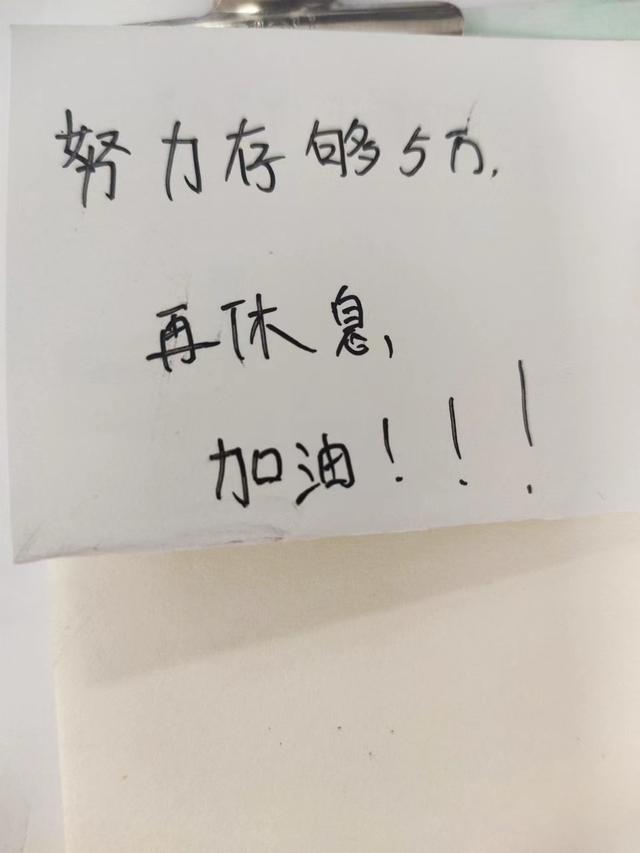 努力存够5万,
再休息,
加油!!!